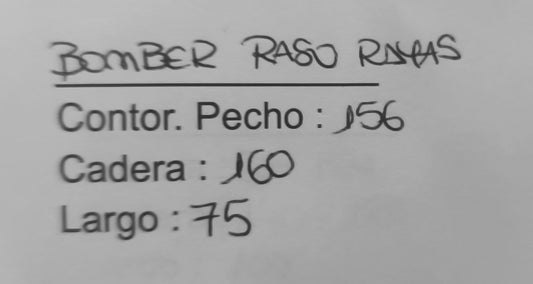 BOMBER RASO RAYAS
Contor. Pecho : 156
Cadera : 160
Largo : 75